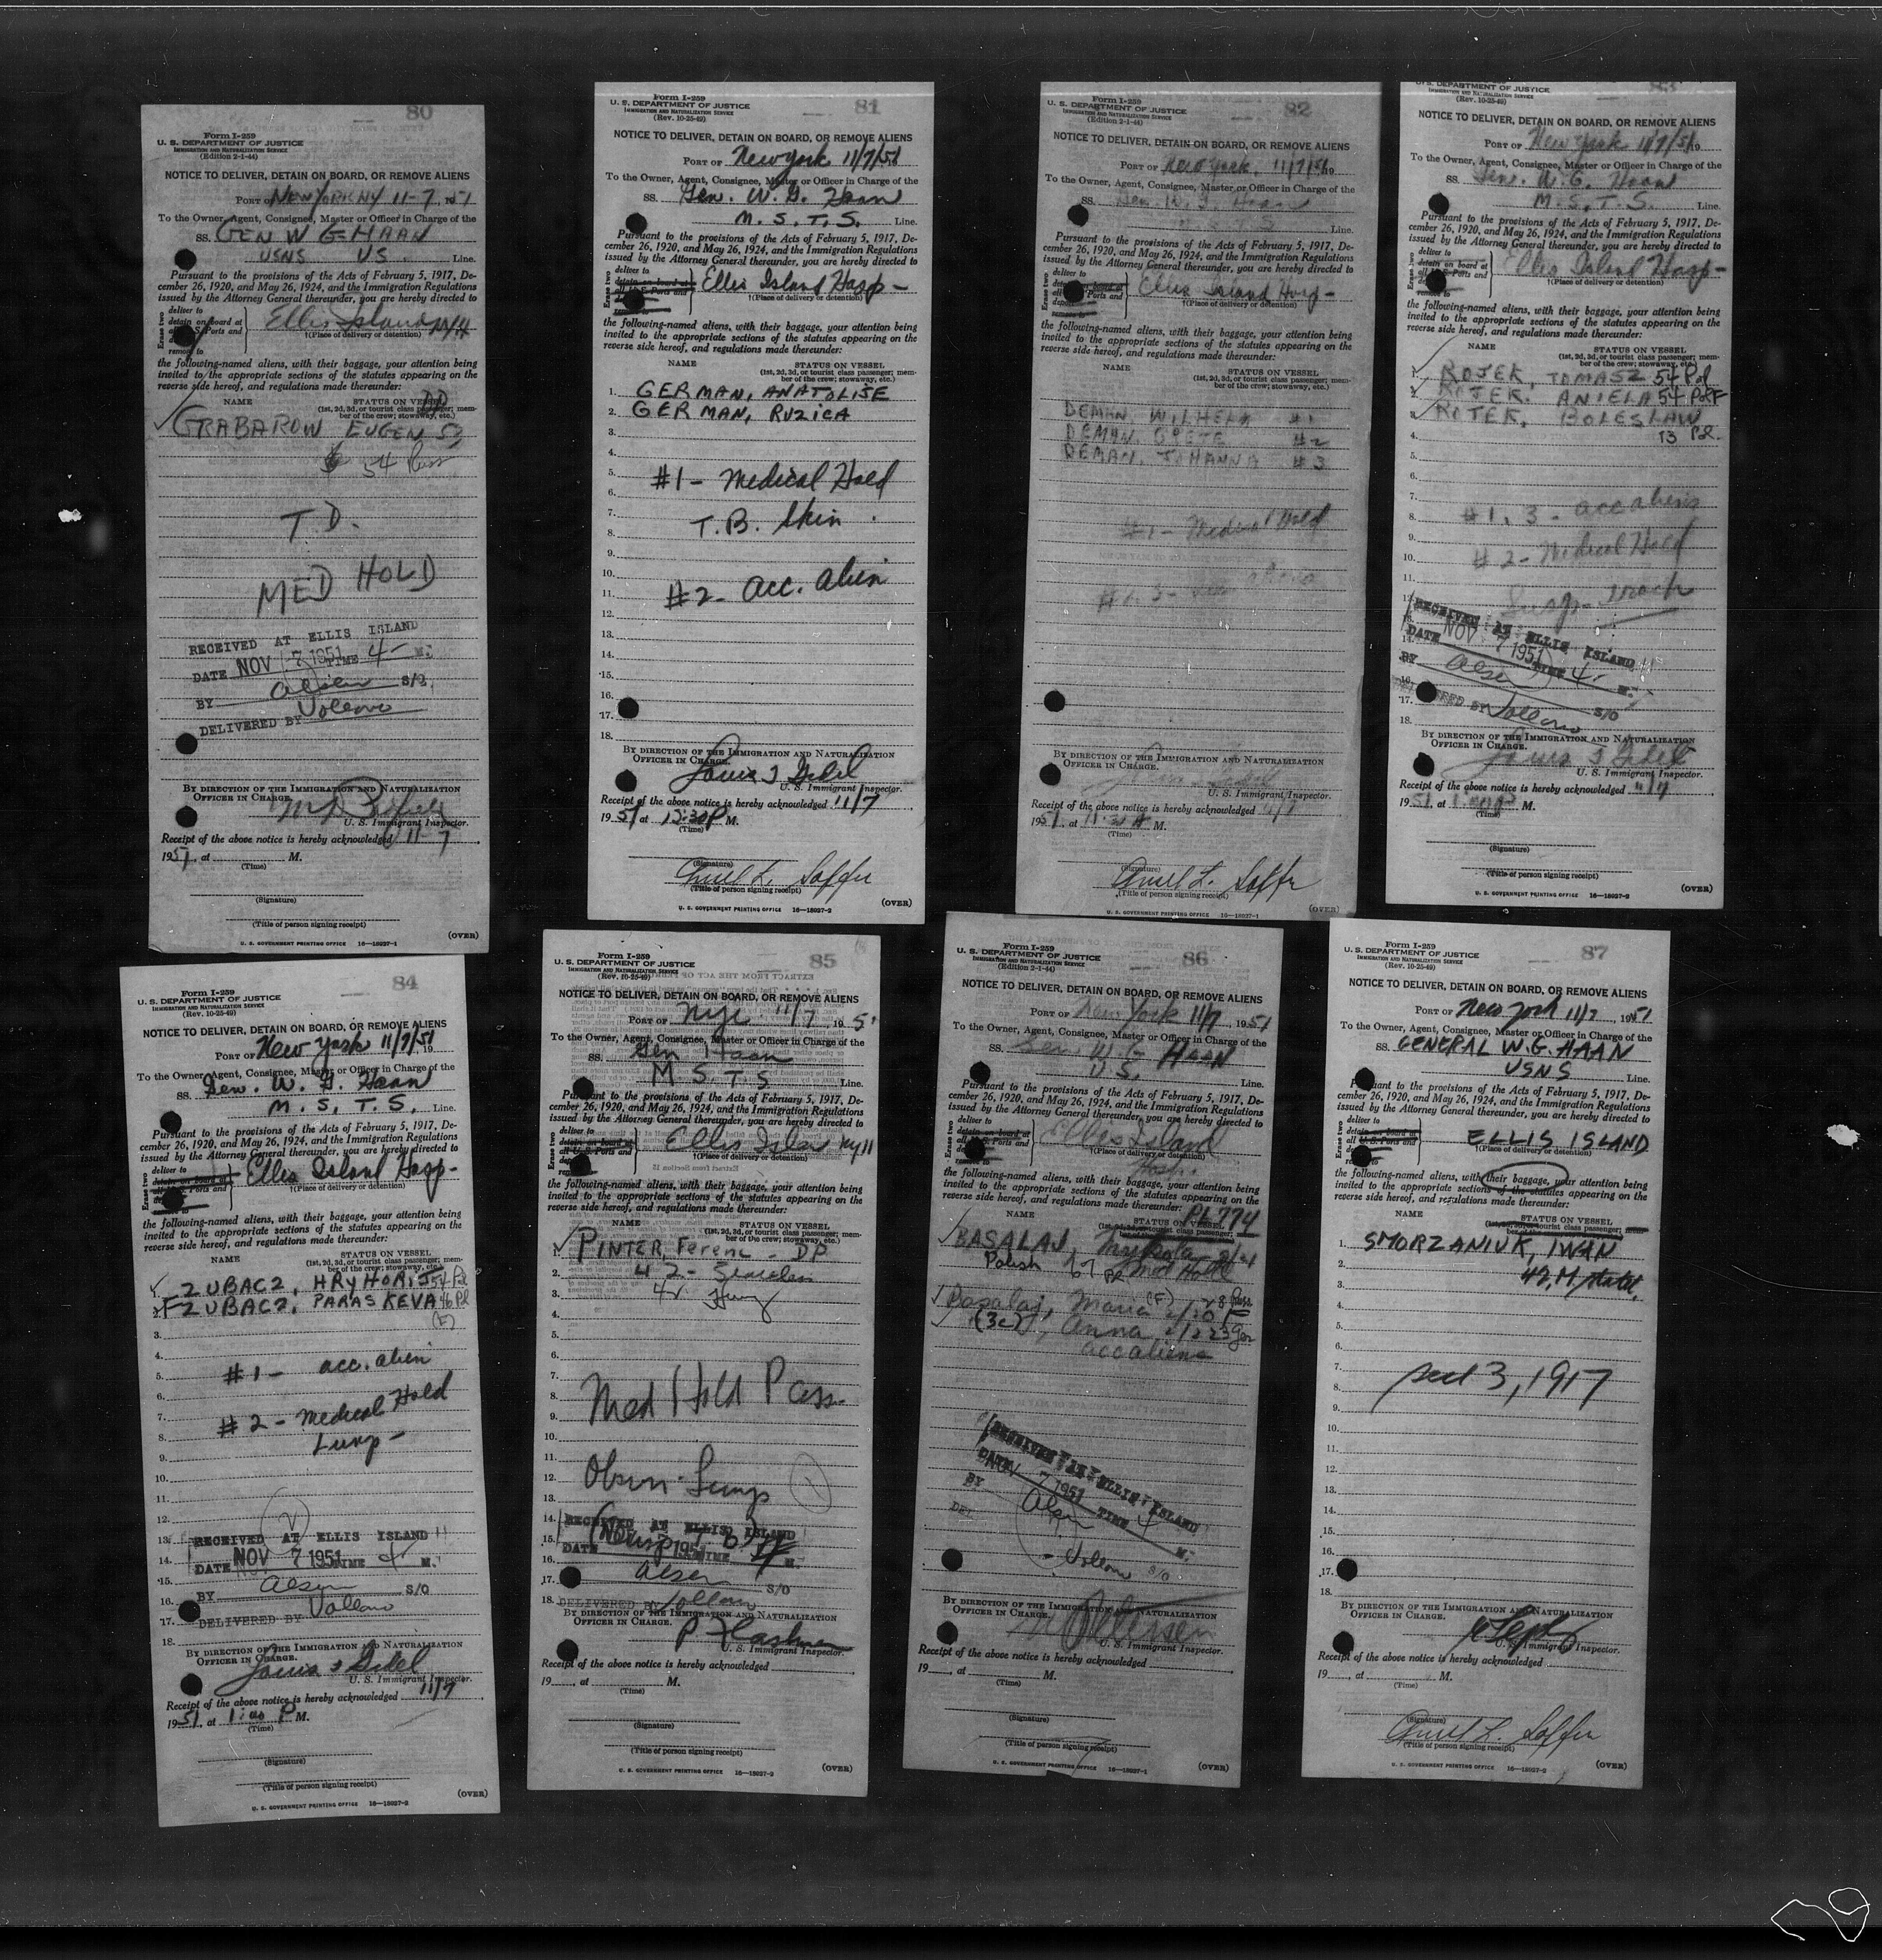 80
Form I-259
U. S. DEPARTMENT OF JUSTICE
IMMIGRATION AND NATURALIZATION SERVICE
(Edition 2-1-44)
NOTICE TO DELIVER, DETAIN ON BOARD, OR REMOVE ALIENS
PORT OF NEW YORK NY 11-7, 1951
To the Owner, Agent, Consignee, Master or Officer in Charge of the
SS. GEN W G HAAN
USNS US. Line.
Pursuant to the provisions of the Acts of February 5, 1917, De-
cember 26, 1920, and May 26, 1924, and the Immigration Regulations
issued by the Attorney General thereunder, you are hereby directed to
deliver to
detain on board at
all U.S. Ports and
remove to
Ellis Island
†(Place of delivery or detention)
the following-named aliens, with their baggage, your attention being
invited to the appropriate sections of the statutes appearing on the
reverse side hereof, and regulations made thereunder:
NAME STATUS ON VESSEL
(1st, 2d, 3d, or tourist class passenger; mem-
ber of the crew; stowaway, etc.)
GRABAROW EUGEN
54
T.D.
MED HOLD
RECEIVED AT ELLIS ISLAND
DATE NOV 7 1951 TIME 4 M.
BY Alsen S/O
DELIVERED BY Vollaro
BY DIRECTION OF THE IMMIGRATION AND NATURALIZATION
OFFICER IN CHARGE.
U. S. Immigrant Inspector.
Receipt of the above notice is hereby acknowledged 11-7
1951, at M.
(Time)
(Signature)
(Title of person signing receipt)
(OVER)
U. S. GOVERNMENT PRINTING OFFICE 16—18027-1
81
Form I-259
U. S. DEPARTMENT OF JUSTICE
IMMIGRATION AND NATURALIZATION SERVICE
(Rev. 10-25-49)
NOTICE TO DELIVER, DETAIN ON BOARD, OR REMOVE ALIENS
PORT OF New York 11/7/51
To the Owner, Agent, Consignee, Master or Officer in Charge of the
SS. Gen. W. G. Haan
M. S. T. S. Line.
Pursuant to the provisions of the Acts of February 5, 1917, De-
cember 26, 1920, and May 26, 1924, and the Immigration Regulations
issued by the Attorney General thereunder, you are hereby directed to
deliver to
detain on board at
all U.S. Ports and
Ellis Island Hosp-
†(Place of delivery or detention)
the following-named aliens, with their baggage, your attention being
invited to the appropriate sections of the statutes appearing on the
reverse side hereof, and regulations made thereunder:
NAME STATUS ON VESSEL
(1st, 2d, 3d, or tourist class passenger; mem-
ber of the crew; stowaway, etc.)
1. GERMAN, ANATOLIJE
2. GERMAN, RUZICA
3.
4.
5. #1 - Medical Hold
6.
7. T.B. Skin.
8.
9.
10.
11. #2 - acc. alien
12.
13.
14.
15.
16.
17.
18.
BY DIRECTION OF THE IMMIGRATION AND NATURALIZATION
OFFICER IN CHARGE.
U. S. Immigrant Inspector.
Receipt of the above notice is hereby acknowledged 11/7
1951 at 12:30 P M.
(Time)
(Signature)
(Title of person signing receipt)
(OVER)
U. S. GOVERNMENT PRINTING OFFICE 16—18027-2
82
Form I-259
U. S. DEPARTMENT OF JUSTICE
IMMIGRATION AND NATURALIZATION SERVICE
(Edition 2-1-44)
NOTICE TO DELIVER, DETAIN ON BOARD, OR REMOVE ALIENS
PORT OF New York, 11/7/51
To the Owner, Agent, Consignee, Master or Officer in Charge of the
SS. Gen. W. G. Haan
Line.
Pursuant to the provisions of the Acts of February 5, 1917, De-
cember 26, 1920, and May 26, 1924, and the Immigration Regulations
issued by the Attorney General thereunder, you are hereby directed to
deliver to
Ellis Island Hosp-
†(Place of delivery or detention)
the following-named aliens, with their baggage, your attention being
invited to the appropriate sections of the statutes appearing on the
reverse side hereof, and regulations made thereunder:
NAME STATUS ON VESSEL
(1st, 2d, 3d, or tourist class passenger; mem-
ber of the crew; stowaway, etc.)
DEMAN, WILHELM #1
DEMAN, GRETE #2
DEMAN, JOHANNA #3
#1 - Medical Hold
BY DIRECTION OF THE IMMIGRATION AND NATURALIZATION
OFFICER IN CHARGE.
U. S. Immigrant Inspector.
Receipt of the above notice is hereby acknowledged 11/7
1951, at M.
(Time)
(Signature)
(Title of person signing receipt)
(OVER)
U. S. GOVERNMENT PRINTING OFFICE 16—18027-1
83
U. S. DEPARTMENT OF JUSTICE
IMMIGRATION AND NATURALIZATION SERVICE
(Rev. 10-25-49)
NOTICE TO DELIVER, DETAIN ON BOARD, OR REMOVE ALIENS
PORT OF New York 11/7/51
To the Owner, Agent, Consignee, Master or Officer in Charge of the
SS. Gen. W. G. Haan
M. S. T. S. Line.
Pursuant to the provisions of the Acts of February 5, 1917, De-
cember 26, 1920, and May 26, 1924, and the Immigration Regulations
issued by the Attorney General thereunder, you are hereby directed to
deliver to
Ellis Island Hosp-
†(Place of delivery or detention)
the following-named aliens, with their baggage, your attention being
invited to the appropriate sections of the statutes appearing on the
reverse side hereof, and regulations made thereunder:
NAME STATUS ON VESSEL
(1st, 2d, 3d, or tourist class passenger; mem-
ber of the crew; stowaway, etc.)
ROJEK, TOMASZ 54 Pol
ROJEK, ANIELA 54 Pol F
ROJEK, BOLESLAW
13 Pol.
#1, 3 - acc aliens
#2 - Medical Hold
RECEIVED AT ELLIS ISLAND
DATE NOV 7 1951 TIME 4 M.
BY Alsen S/O
Vollaro
BY DIRECTION OF THE IMMIGRATION AND NATURALIZATION
OFFICER IN CHARGE.
U. S. Immigrant Inspector.
Receipt of the above notice is hereby acknowledged 11/7
1951 at M.
(Time)
(Signature)
(Title of person signing receipt)
(OVER)
U. S. GOVERNMENT PRINTING OFFICE 16—18027-2
84
Form I-259
U. S. DEPARTMENT OF JUSTICE
IMMIGRATION AND NATURALIZATION SERVICE
(Rev. 10-25-49)
NOTICE TO DELIVER, DETAIN ON BOARD, OR REMOVE ALIENS
PORT OF New York 11/7/51
To the Owner, Agent, Consignee, Master or Officer in Charge of the
SS. Gen. W. G. Haan
M. S. T. S. Line.
Pursuant to the provisions of the Acts of February 5, 1917, De-
cember 26, 1920, and May 26, 1924, and the Immigration Regulations
issued by the Attorney General thereunder, you are hereby directed to
deliver to
Ellis Island Hosp-
†(Place of delivery or detention)
the following-named aliens, with their baggage, your attention being
invited to the appropriate sections of the statutes appearing on the
reverse side hereof, and regulations made thereunder:
NAME STATUS ON VESSEL
(1st, 2d, 3d, or tourist class passenger; mem-
ber of the crew; stowaway, etc.)
ZUBACZ, HRYHORIJ 54 Pol
ZUBACZ, PARASKEVA 46 Pol
(F)
#1 - acc. alien
#2 - Medical Hold
Lung -
RECEIVED AT ELLIS ISLAND
DATE NOV 7 1951 TIME 4 M.
BY Alsen S/O
DELIVERED BY Vollaro
BY DIRECTION OF THE IMMIGRATION AND NATURALIZATION
OFFICER IN CHARGE.
U. S. Immigrant Inspector.
Receipt of the above notice is hereby acknowledged 11/7
1951, at 1:00 P M.
(Time)
(Signature)
(Title of person signing receipt)
(OVER)
U. S. GOVERNMENT PRINTING OFFICE 16—18027-2
85
Form I-259
U. S. DEPARTMENT OF JUSTICE
IMMIGRATION AND NATURALIZATION SERVICE
(Rev. 10-25-49)
NOTICE TO DELIVER, DETAIN ON BOARD, OR REMOVE ALIENS
PORT OF NYC 11/7, 195
To the Owner, Agent, Consignee, Master or Officer in Charge of the
SS. Gen Haan
M S T S Line.
Pursuant to the provisions of the Acts of February 5, 1917, De-
cember 26, 1920, and May 26, 1924, and the Immigration Regulations
issued by the Attorney General thereunder, you are hereby directed to
deliver to
detain on board at
all U.S. Ports and
Ellis Island
†(Place of delivery or detention)
the following-named aliens, with their baggage, your attention being
invited to the appropriate sections of the statutes appearing on the
reverse side hereof, and regulations made thereunder:
NAME STATUS ON VESSEL
(1st, 2d, 3d, or tourist class passenger; mem-
ber of the crew; stowaway, etc.)
PINTER, Ferenc - DP
Med Hold Pass-
Lungs
RECEIVED AT ELLIS ISLAND
DATE NOV 7 1951 TIME M.
Alsen S/O
DELIVERED BY Vollaro
BY DIRECTION OF THE IMMIGRATION AND NATURALIZATION
OFFICER IN CHARGE.
U. S. Immigrant Inspector.
Receipt of the above notice is hereby acknowledged
19, at M.
(Time)
(Signature)
(Title of person signing receipt)
(OVER)
U. S. GOVERNMENT PRINTING OFFICE 16—18027-2
86
Form I-259
U. S. DEPARTMENT OF JUSTICE
IMMIGRATION AND NATURALIZATION SERVICE
(Edition 2-1-44)
NOTICE TO DELIVER, DETAIN ON BOARD, OR REMOVE ALIENS
PORT OF New York 11/7, 1951
To the Owner, Agent, Consignee, Master or Officer in Charge of the
SS. Gen W G HAAN
U.S. Line.
Pursuant to the provisions of the Acts of February 5, 1917, De-
cember 26, 1920, and May 26, 1924, and the Immigration Regulations
issued by the Attorney General thereunder, you are hereby directed to
deliver to
Ellis Island
†(Place of delivery or detention)
Hosp.
the following-named aliens, with their baggage, your attention being
invited to the appropriate sections of the statutes appearing on the
reverse side hereof, and regulations made thereunder: PL 774
NAME STATUS ON VESSEL
BASALAJ,
Polish 67 Med Hold
Basalaj, Maria (F)
Anna
acc aliens
RECEIVED AT ELLIS ISLAND
DATE NOV 7 1951 TIME 4 M.
BY Alsen
Vollaro S/O
BY DIRECTION OF THE IMMIGRATION AND NATURALIZATION
OFFICER IN CHARGE.
U. S. Immigrant Inspector.
Receipt of the above notice is hereby acknowledged
19, at M.
(Time)
(Signature)
(Title of person signing receipt)
(OVER)
U. S. GOVERNMENT PRINTING OFFICE 16—18027-1
87
Form I-259
U. S. DEPARTMENT OF JUSTICE
IMMIGRATION AND NATURALIZATION SERVICE
(Rev. 10-25-49)
NOTICE TO DELIVER, DETAIN ON BOARD, OR REMOVE ALIENS
PORT OF New York 11/7, 1951
To the Owner, Agent, Consignee, Master or Officer in Charge of the
SS. GENERAL W. G. HAAN
USNS Line.
Pursuant to the provisions of the Acts of February 5, 1917, De-
cember 26, 1920, and May 26, 1924, and the Immigration Regulations
issued by the Attorney General thereunder, you are hereby directed to
deliver to
detain on board at
all U.S. Ports and
ELLIS ISLAND
†(Place of delivery or detention)
the following-named aliens, with their baggage, your attention being
invited to the appropriate sections of the statutes appearing on the
reverse side hereof, and regulations made thereunder:
NAME STATUS ON VESSEL
1. SMORZANIUK, IWAN
2. 42, M,
3.
4.
5.
6.
7. sect 3, 1917
8.
9.
10.
11.
12.
13.
14.
15.
16.
17.
18.
BY DIRECTION OF THE IMMIGRATION AND NATURALIZATION
OFFICER IN CHARGE.
U. S. Immigrant Inspector.
Receipt of the above notice is hereby acknowledged
19, at M.
(Time)
(Signature)
(Title of person signing receipt)
(OVER)
U. S. GOVERNMENT PRINTING OFFICE 16—18027-2